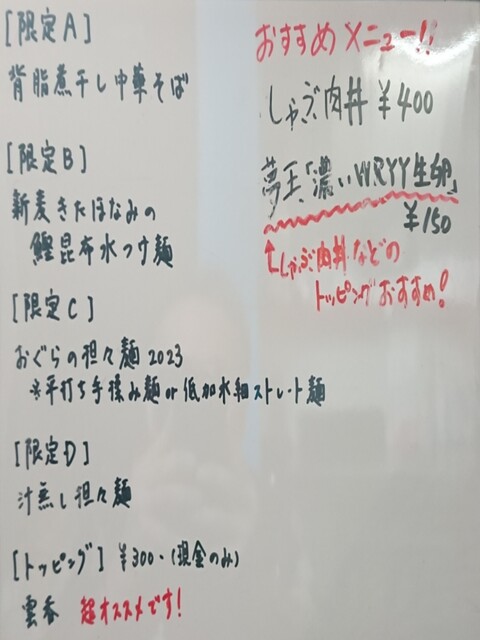 [限定A]
背脂煮干し中華そば
[限定B]
新麦きたほなみの
鰹昆布水つけ麺
[限定C]
おぐらの担々麺2023
※平打ち手揉み麺or低加水細ストレート麺
[限定D]
汁無し担々麺
[トッピング] ¥300-(現金のみ)
雲呑 超オススメです!
おすすめメニュー!!
しゃぶ肉丼 ¥400
夢王「濃いWRYY生卵」
¥150
↑しゃぶ肉丼などの
トッピングおすすめ!